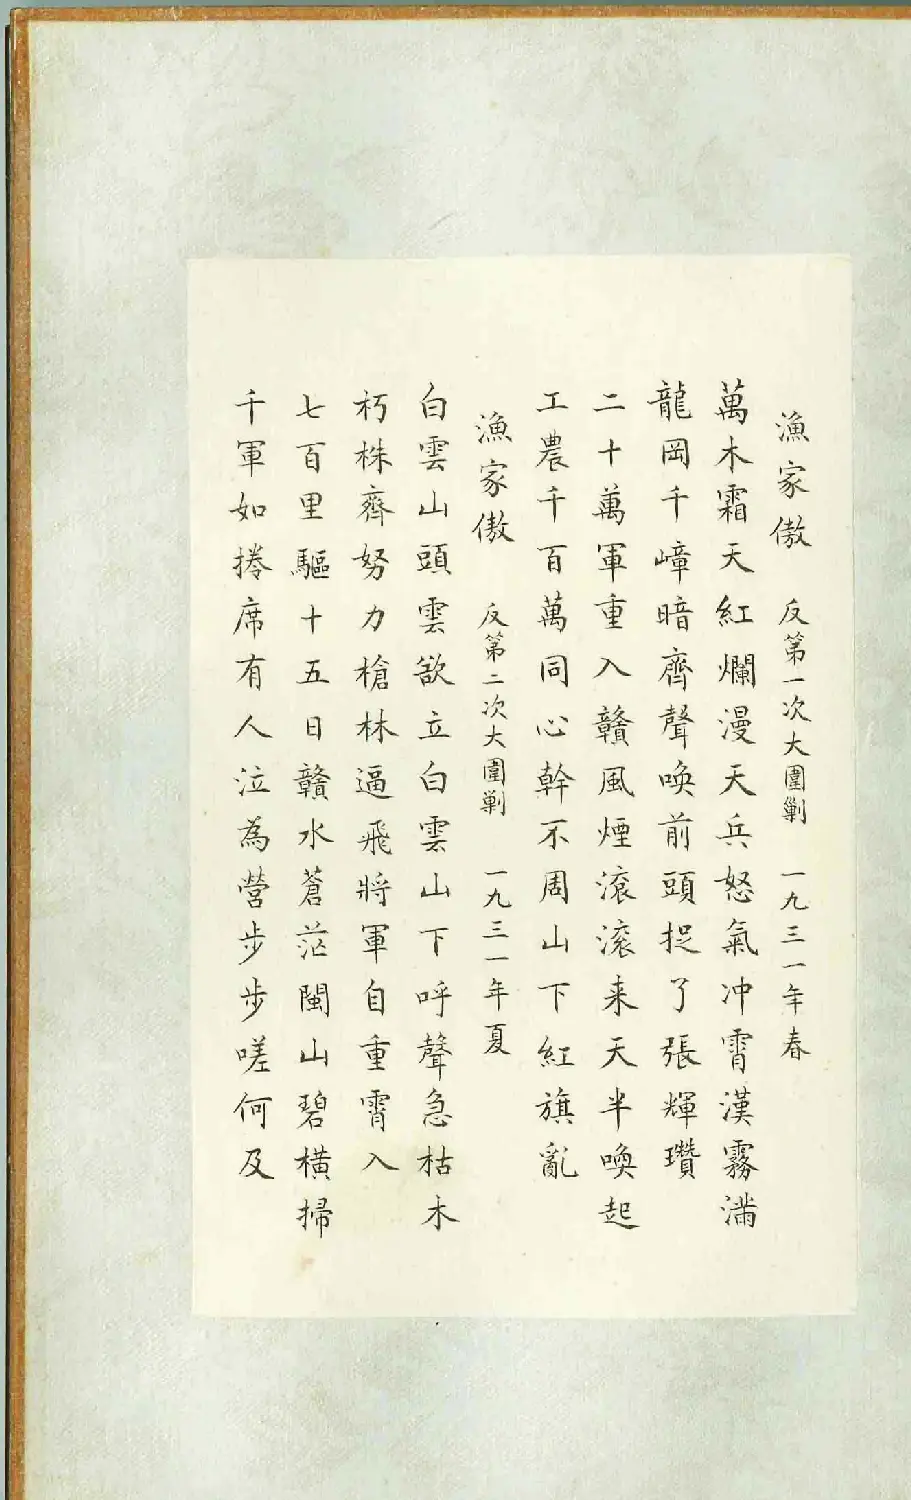 漁家傲 反第一次大圍剿 一九三一年春
萬木霜天紅爛漫天兵怒氣冲霄漢霧滿
龍岡千嶂暗齊聲喚前頭捉了張輝瓚
二十萬軍重入贛風煙滾滾来天半喚起
工農千百萬同心幹不周山下紅旗亂
漁家傲 反第二次大圍剿 一九三一年夏
白雲山頭雲欲立白雲山下呼聲急枯木
朽株齊努力槍林逼飛將軍自重霄入
七百里驅十五日贛水蒼茫閩山碧橫掃
千軍如捲席有人泣為營步步嗟何及